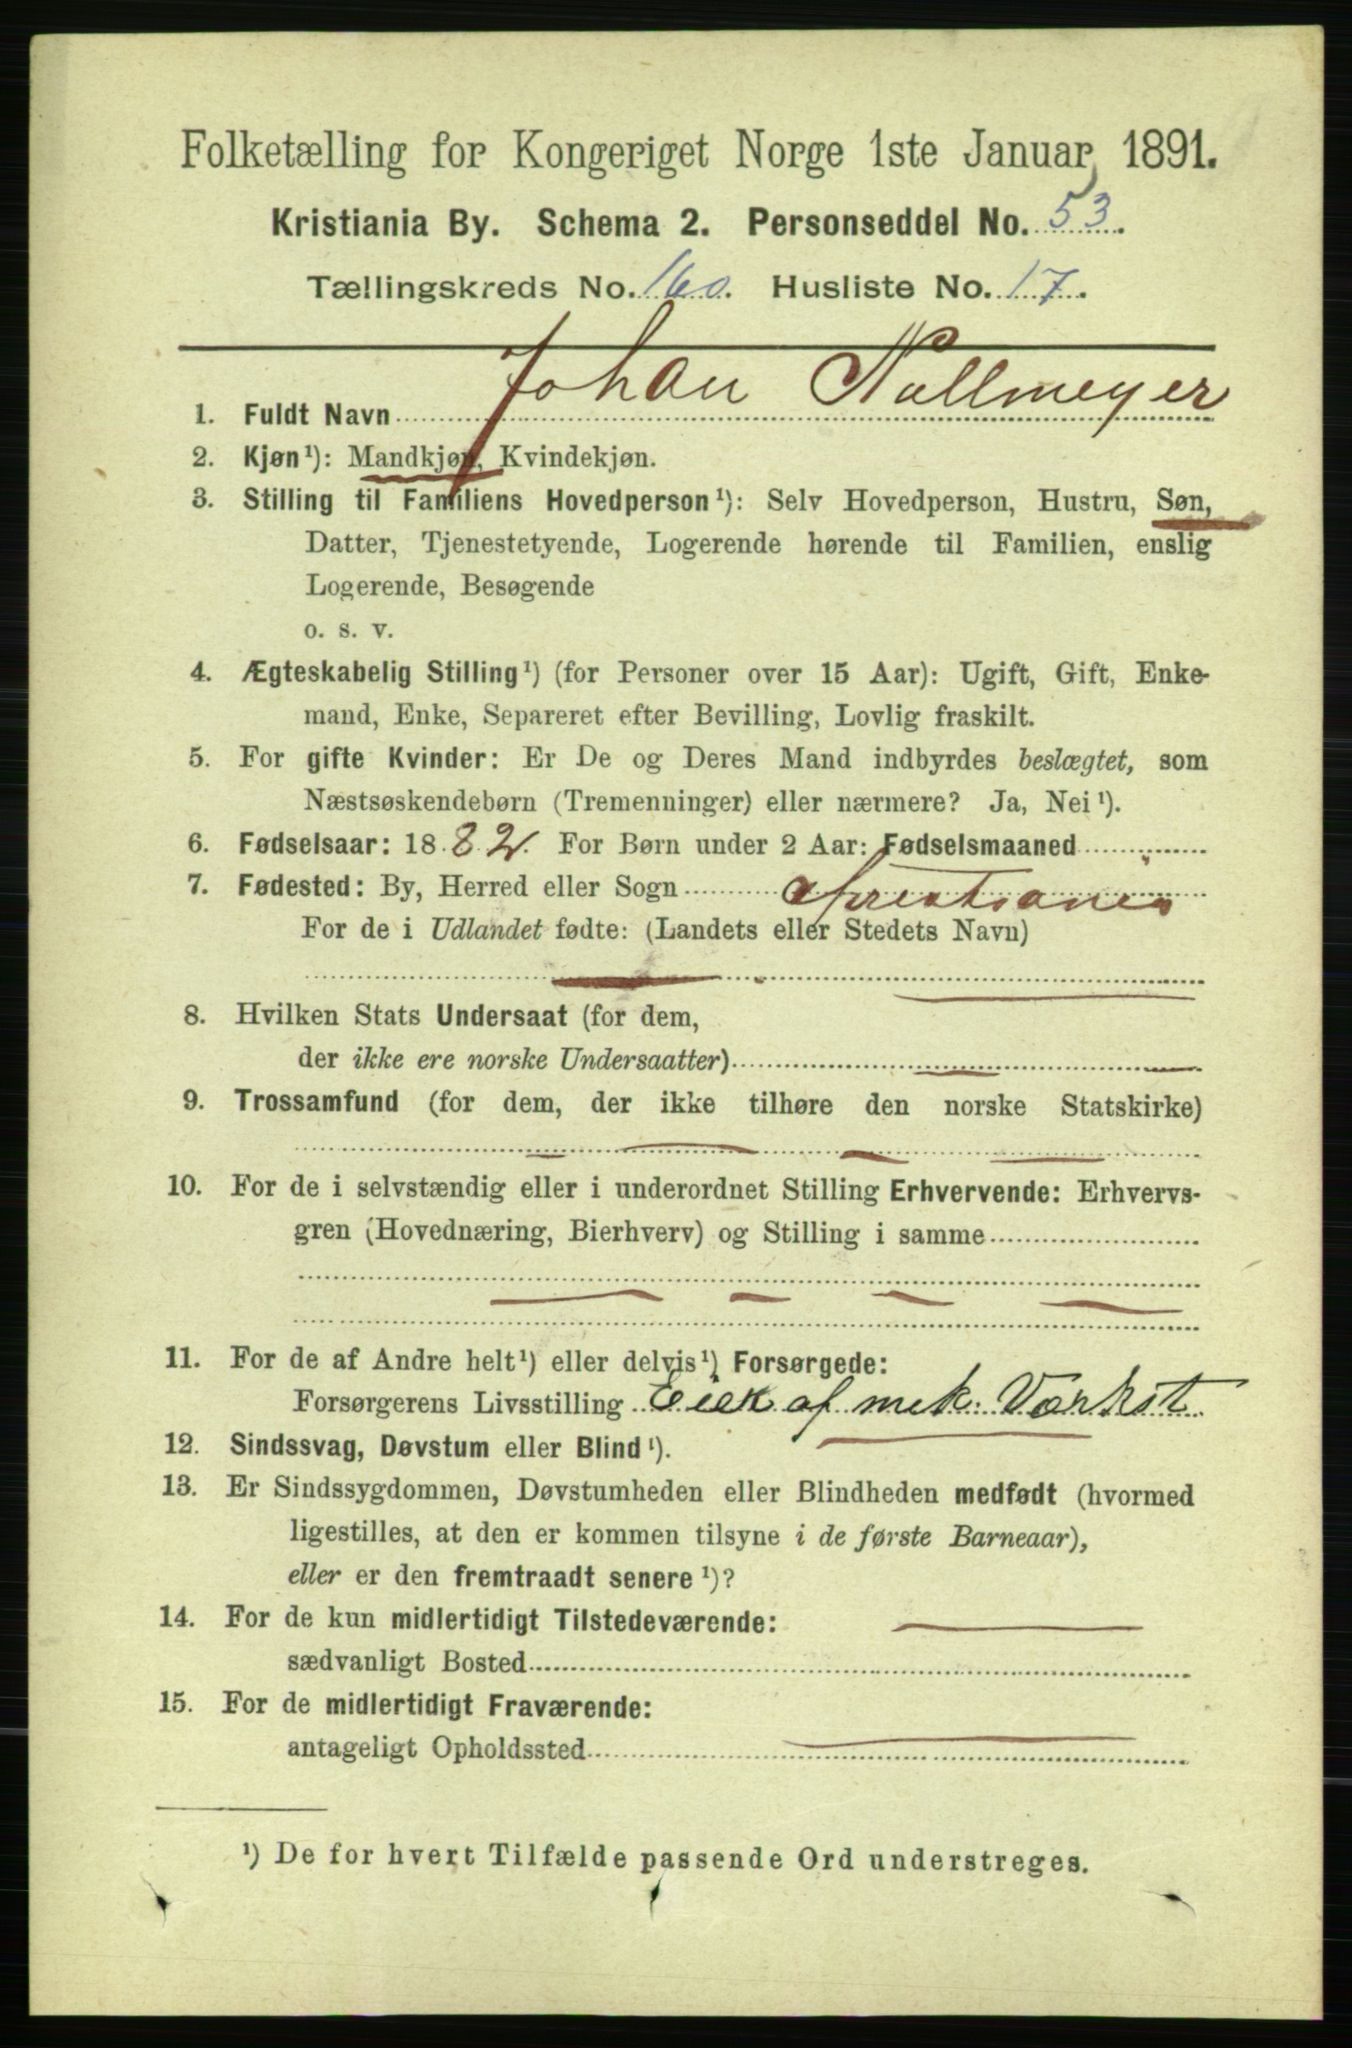 Folketælling for Kongeriget Norge 1ste Januar 1891.
Kristiania By. Schema 2. Personseddel No. 53.
Tællingskreds No. 160. Husliste No. 17.
1. Fuldt Navn Johan Nallmeyer
2. Kjøn¹): Mandkjøn, Kvindekjøn.
3. Stilling til Familiens Hovedperson¹): Selv Hovedperson, Hustru, Søn,
Datter, Tjenestetyende, Logerende hørende til Familien, enslig
Logerende, Besøgende
o. s. v.
4. Ægteskabelig Stilling¹) (for Personer over 15 Aar): Ugift, Gift, Enke-
mand, Enke, Separeret efter Bevilling, Lovlig fraskilt.
5. For gifte Kvinder: Er De og Deres Mand indbyrdes beslægtet, som
Næstsøskendebørn (Tremenninger) eller nærmere? Ja, Nei¹).
6. Fødselsaar: 1882. For Børn under 2 Aar: Fødselsmaaned
7. Fødested: By, Herred eller Sogn Christiania
For de i Udlandet fødte: (Landets eller Stedets Navn)
8. Hvilken Stats Undersaat (for dem,
der ikke ere norske Undersaatter)
9. Trossamfund (for dem, der ikke tilhøre den norske Statskirke)
10. For de i selvstændig eller i underordnet Stilling Erhvervende: Erhvervs-
gren (Hovednæring, Bierhverv) og Stilling i samme
11. For de af Andre helt¹) eller delvis¹) Forsørgede:
Forsørgerens Livsstilling Eier af mek. Værkst
12. Sindssvag, Døvstum eller Blind¹).
13. Er Sindssygdommen, Døvstumheden eller Blindheden medfødt (hvormed
ligestilles, at den er kommen tilsyne i de første Barneaar),
eller er den fremtraadt senere¹)?
14. For de kun midlertidigt Tilstedeværende:
sædvanligt Bosted
15. For de midlertidigt Fraværende:
antageligt Opholdssted
¹) De for hvert Tilfælde passende Ord understreges.